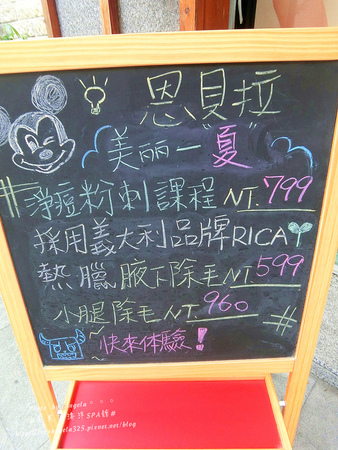 恩貝拉
美丽一"夏"
淨痘粉刺課程 NT.799
採用義大利品牌RICA
熱臘腋下除毛NT599
小腿除毛NT.960
快來体驗!